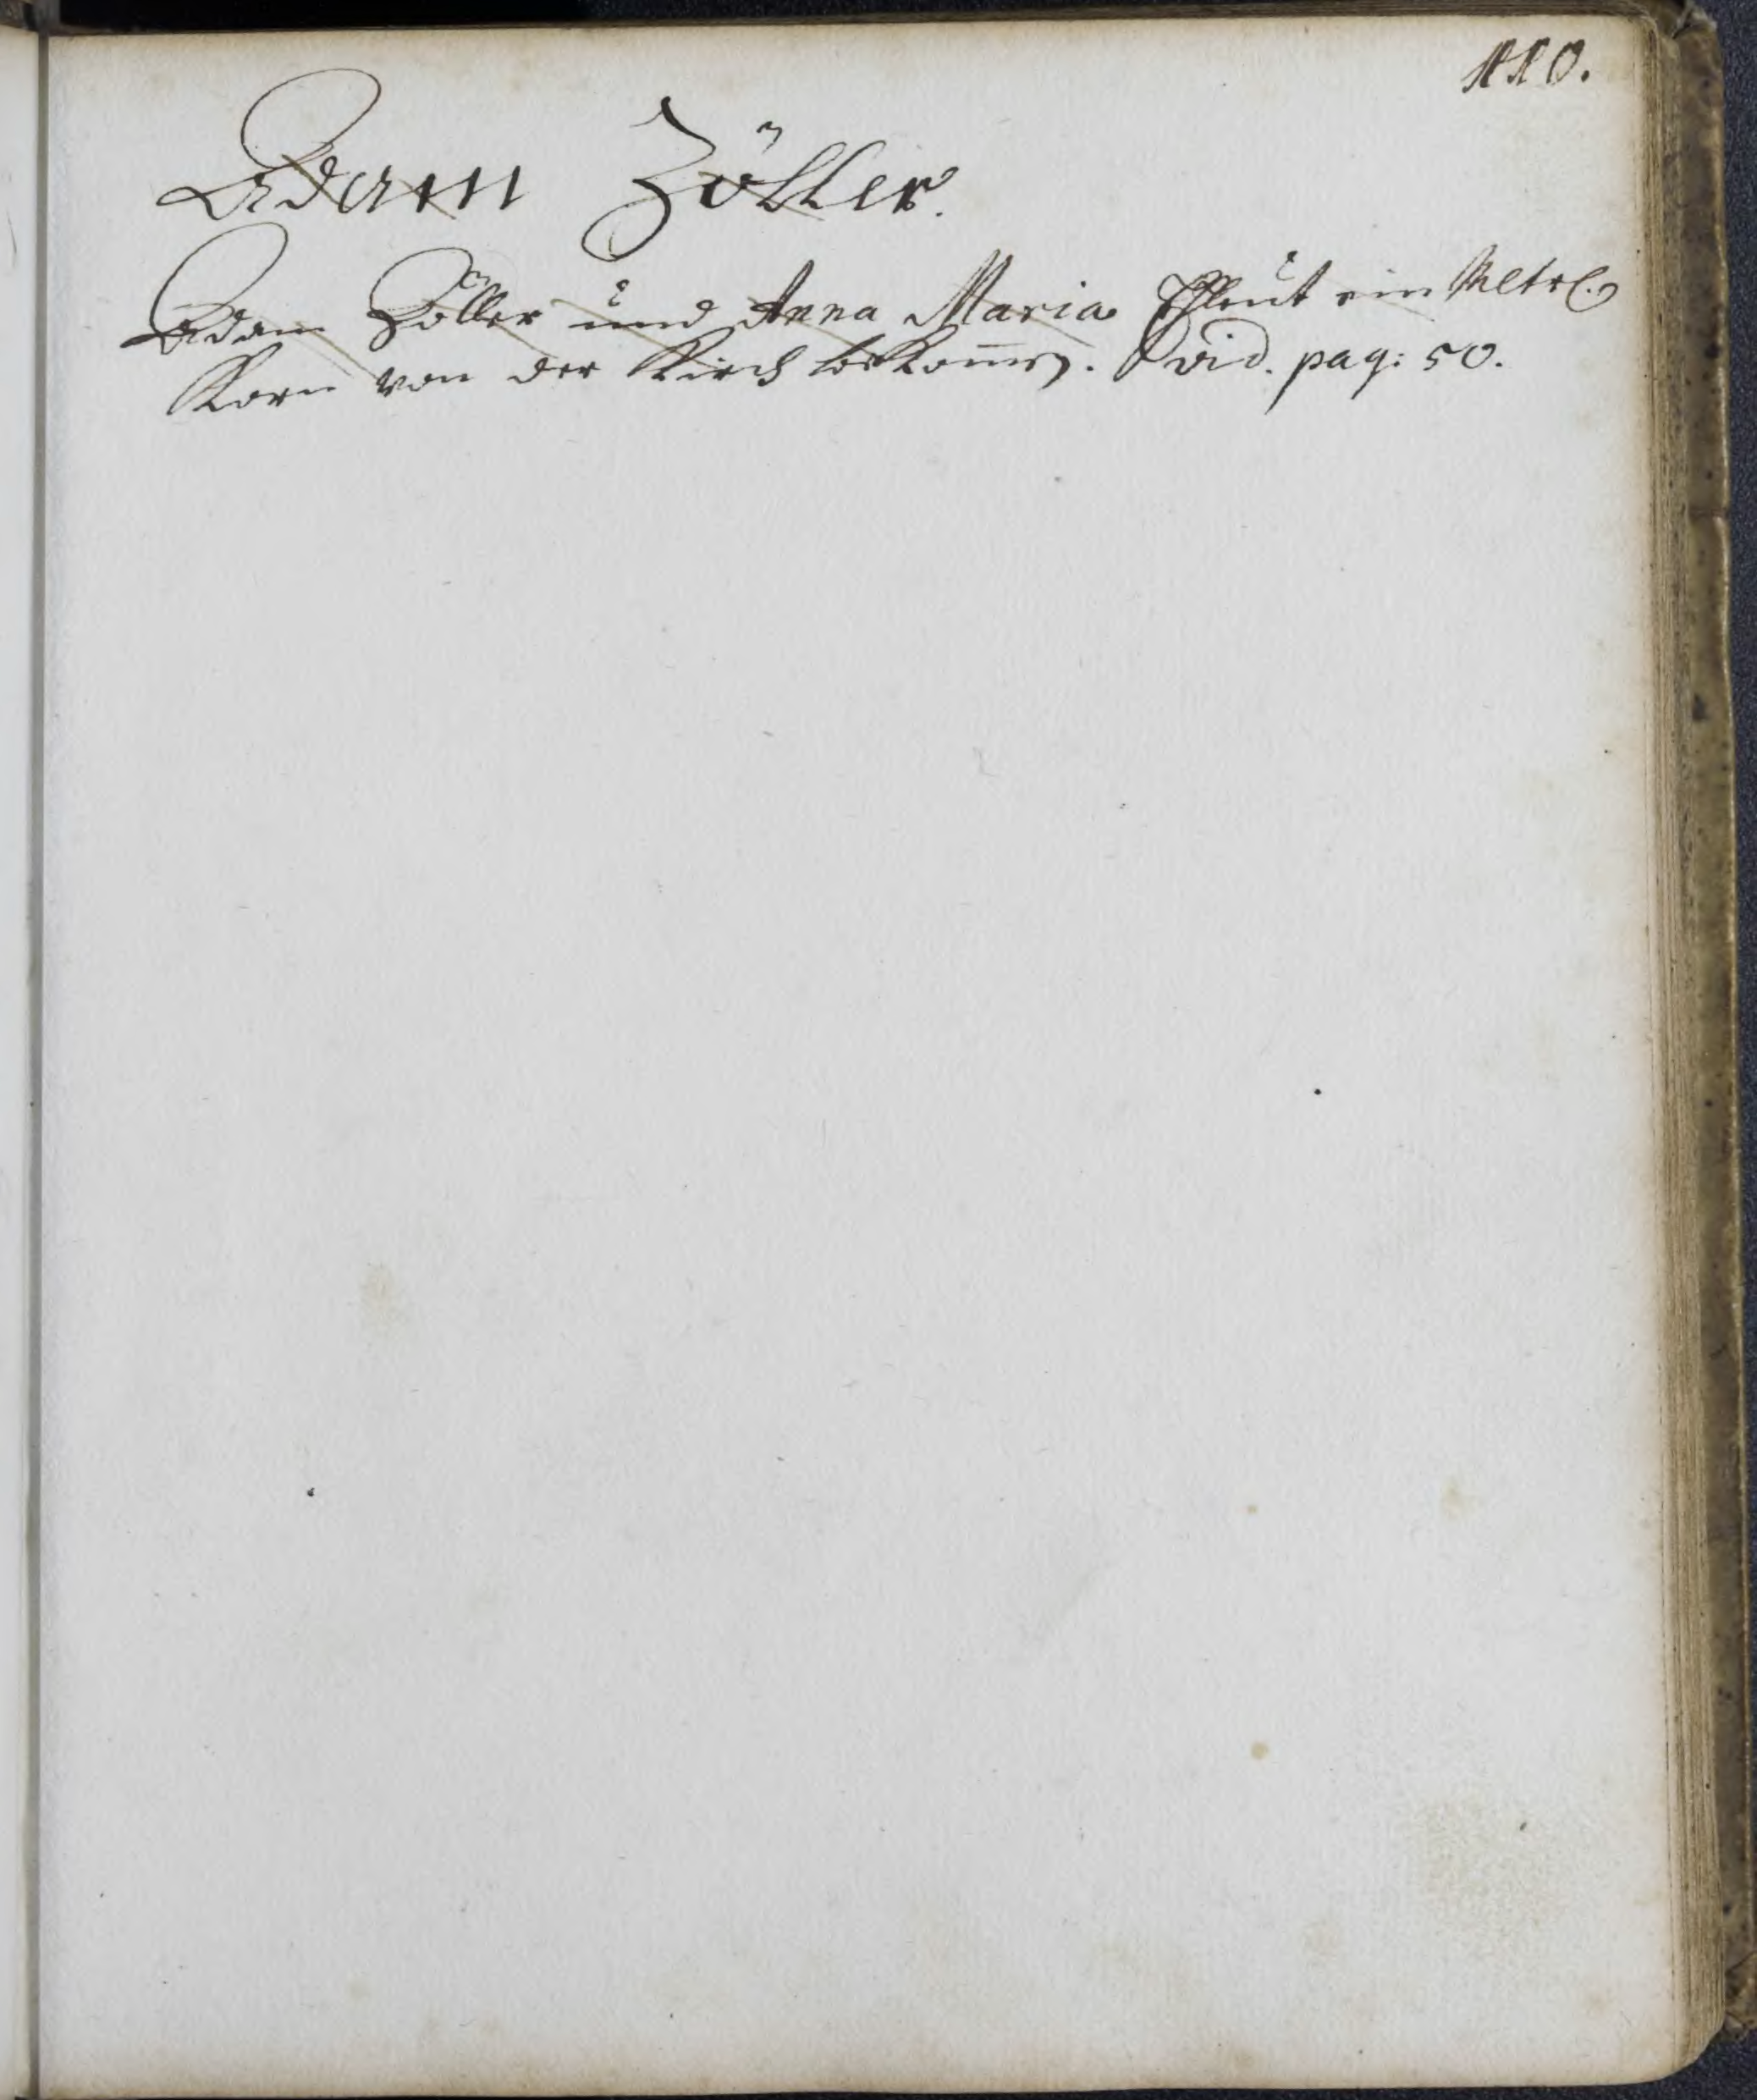 110.
Adam Zöller.
Adam Zöller und Anna Maria Ehleut ein Mltr.
Korn von der Kirch bekom̅en. vid. pag: 50.